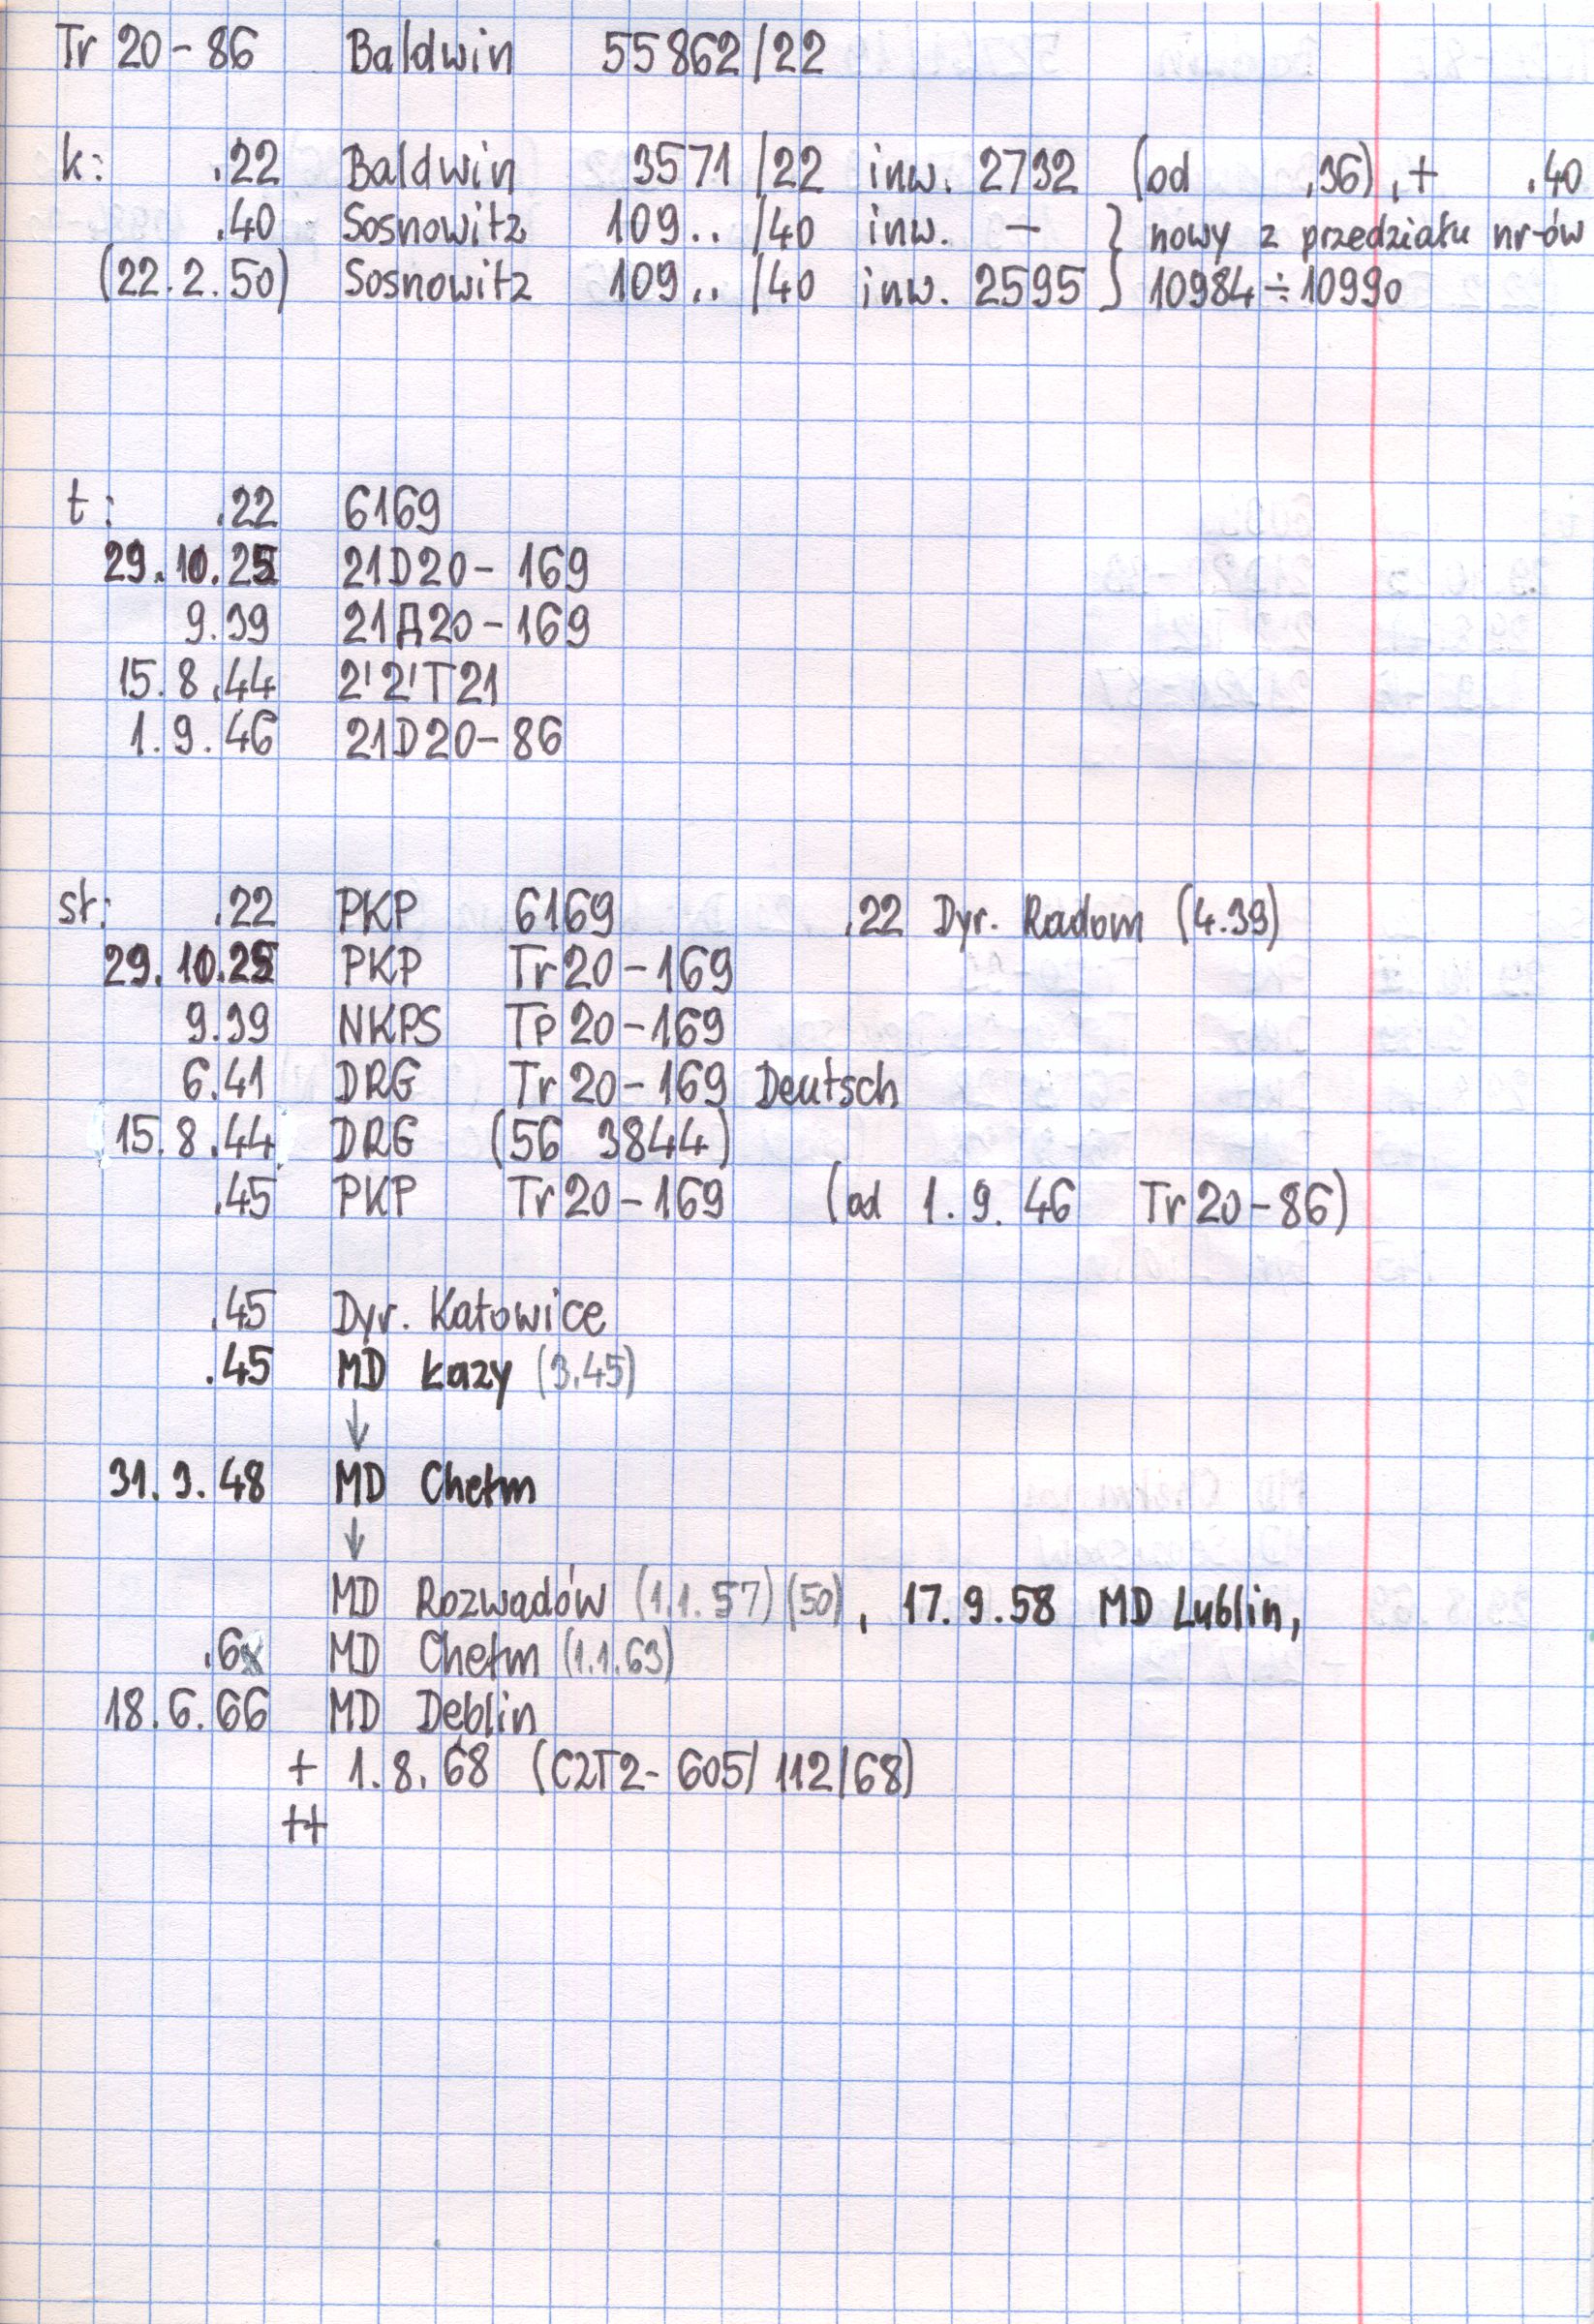 Tr 20-86 Baldwin 55862/22
k: .22 Baldwin 3571/22 inw. 2732 (od .36), + .40
.40 Sosnowitz 109.. /40 inw. — } nowy z przedziału nr-ów
(22.2.50) Sosnowitz 109.. /40 inw. 2595 } 10984÷10990
t: .22 6169
29.10.25 21D20-169
9.39 21Д20-169
15.8.44 2'2'T21
1.9.46 21D20-86
st: .22 PKP 6169 .22 Dyr. Radom (4.39)
29.10.25 PKP Tr20-169
9.39 NKPS Tp20-169
6.41 DRG Tr20-169 Deutsch
15.8.44 DRG (56 3844)
.45 PKP Tr20-169 (od 1.9.46 Tr20-86)
.45 Dyr. Katowice
.45 MD Łazy (3.45)
↓
31.3.48 MD Chełm
↓
MD Rozwadów (1.1.57)(50), 17.9.58 MD Lublin,
.6x MD Chełm (1.1.63)
18.6.66 MD Dęblin
+ 1.8.68 (C2T2-605/112/68)
++